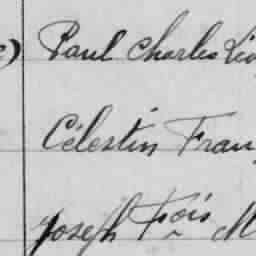 Paul Charles Léo
Célestin Fran
Joseph Frois M